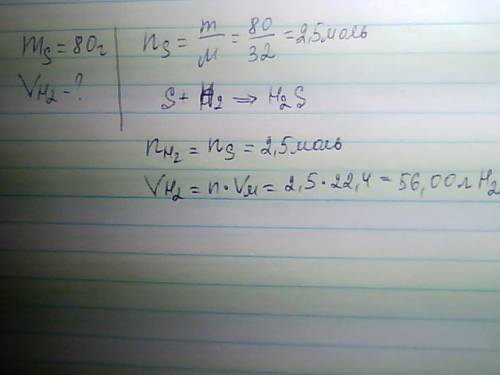 m_S = 80г
V_H₂ - ?
n_S = m/M = 80/32 = 2,5моль
S + H₂ => H₂S
n_H₂ = n_S = 2,5моль
V_H₂ = n · Vм = 2,5 · 22,4 = 56,00л H₂